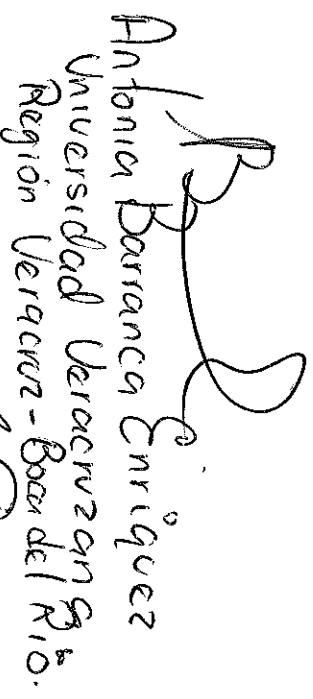 Antonia Barranca Enríquez
Universidad Veracruzana
Región Veracruz-Boca del Río.